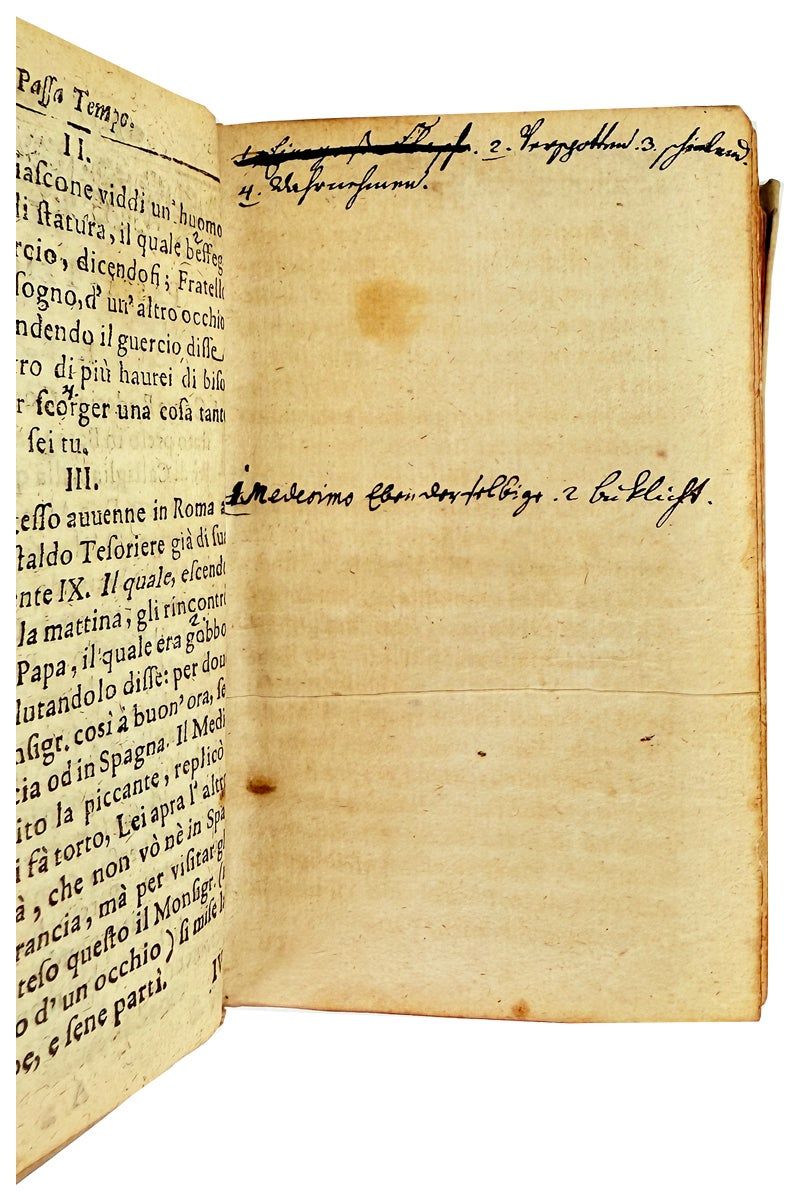 Paſſa Tempo.
II.
iaſcone viddi un' huomo
di ſtatura, il quale beffeg
rcio, dicendoſi; Fratello
ſogno, d' un' altro occhio
ndendo il guercio diſſe
ro di più haurei di biſo
r ſcorger una coſa tanto
ſei tu.
III.
ceſſo auuenne in Roma a
ſtaldo Teſoriere già di ſua
nte IX. Il quale, eſcendo
la mattina, gli rincontrò
Papa, il quale era gobbo
lutandolo diſſe: per doue
nſigr. così à buon' ora, ſe
cia od in Spagna. Il Medi
ito la piccante, replicò
i fà torto, Lei apra l' altro
à, che non vò nè in Spa
rancia, mà per viſitar gl
teſo queſto il Monſigr. (
o d' un occhio) ſi miſe
pe, e ſene partì.
IV
2. Verspotten. 3. schielend.
4. Wahrnehmen.
1 Medesimo Ebenderselbige. 2 buklicht.